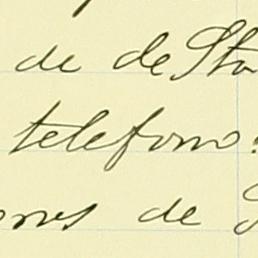 de de Sta
telefono.
ones de